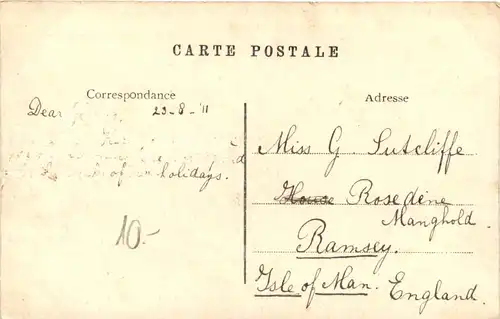 CARTE POSTALE
Correspondance
23-8-11
Dear
of
holidays.
10.-
Adresse
Miss G. Sutcliffe
House Rosedene
Manghold.
Ramsey.
Isle of Man. England.